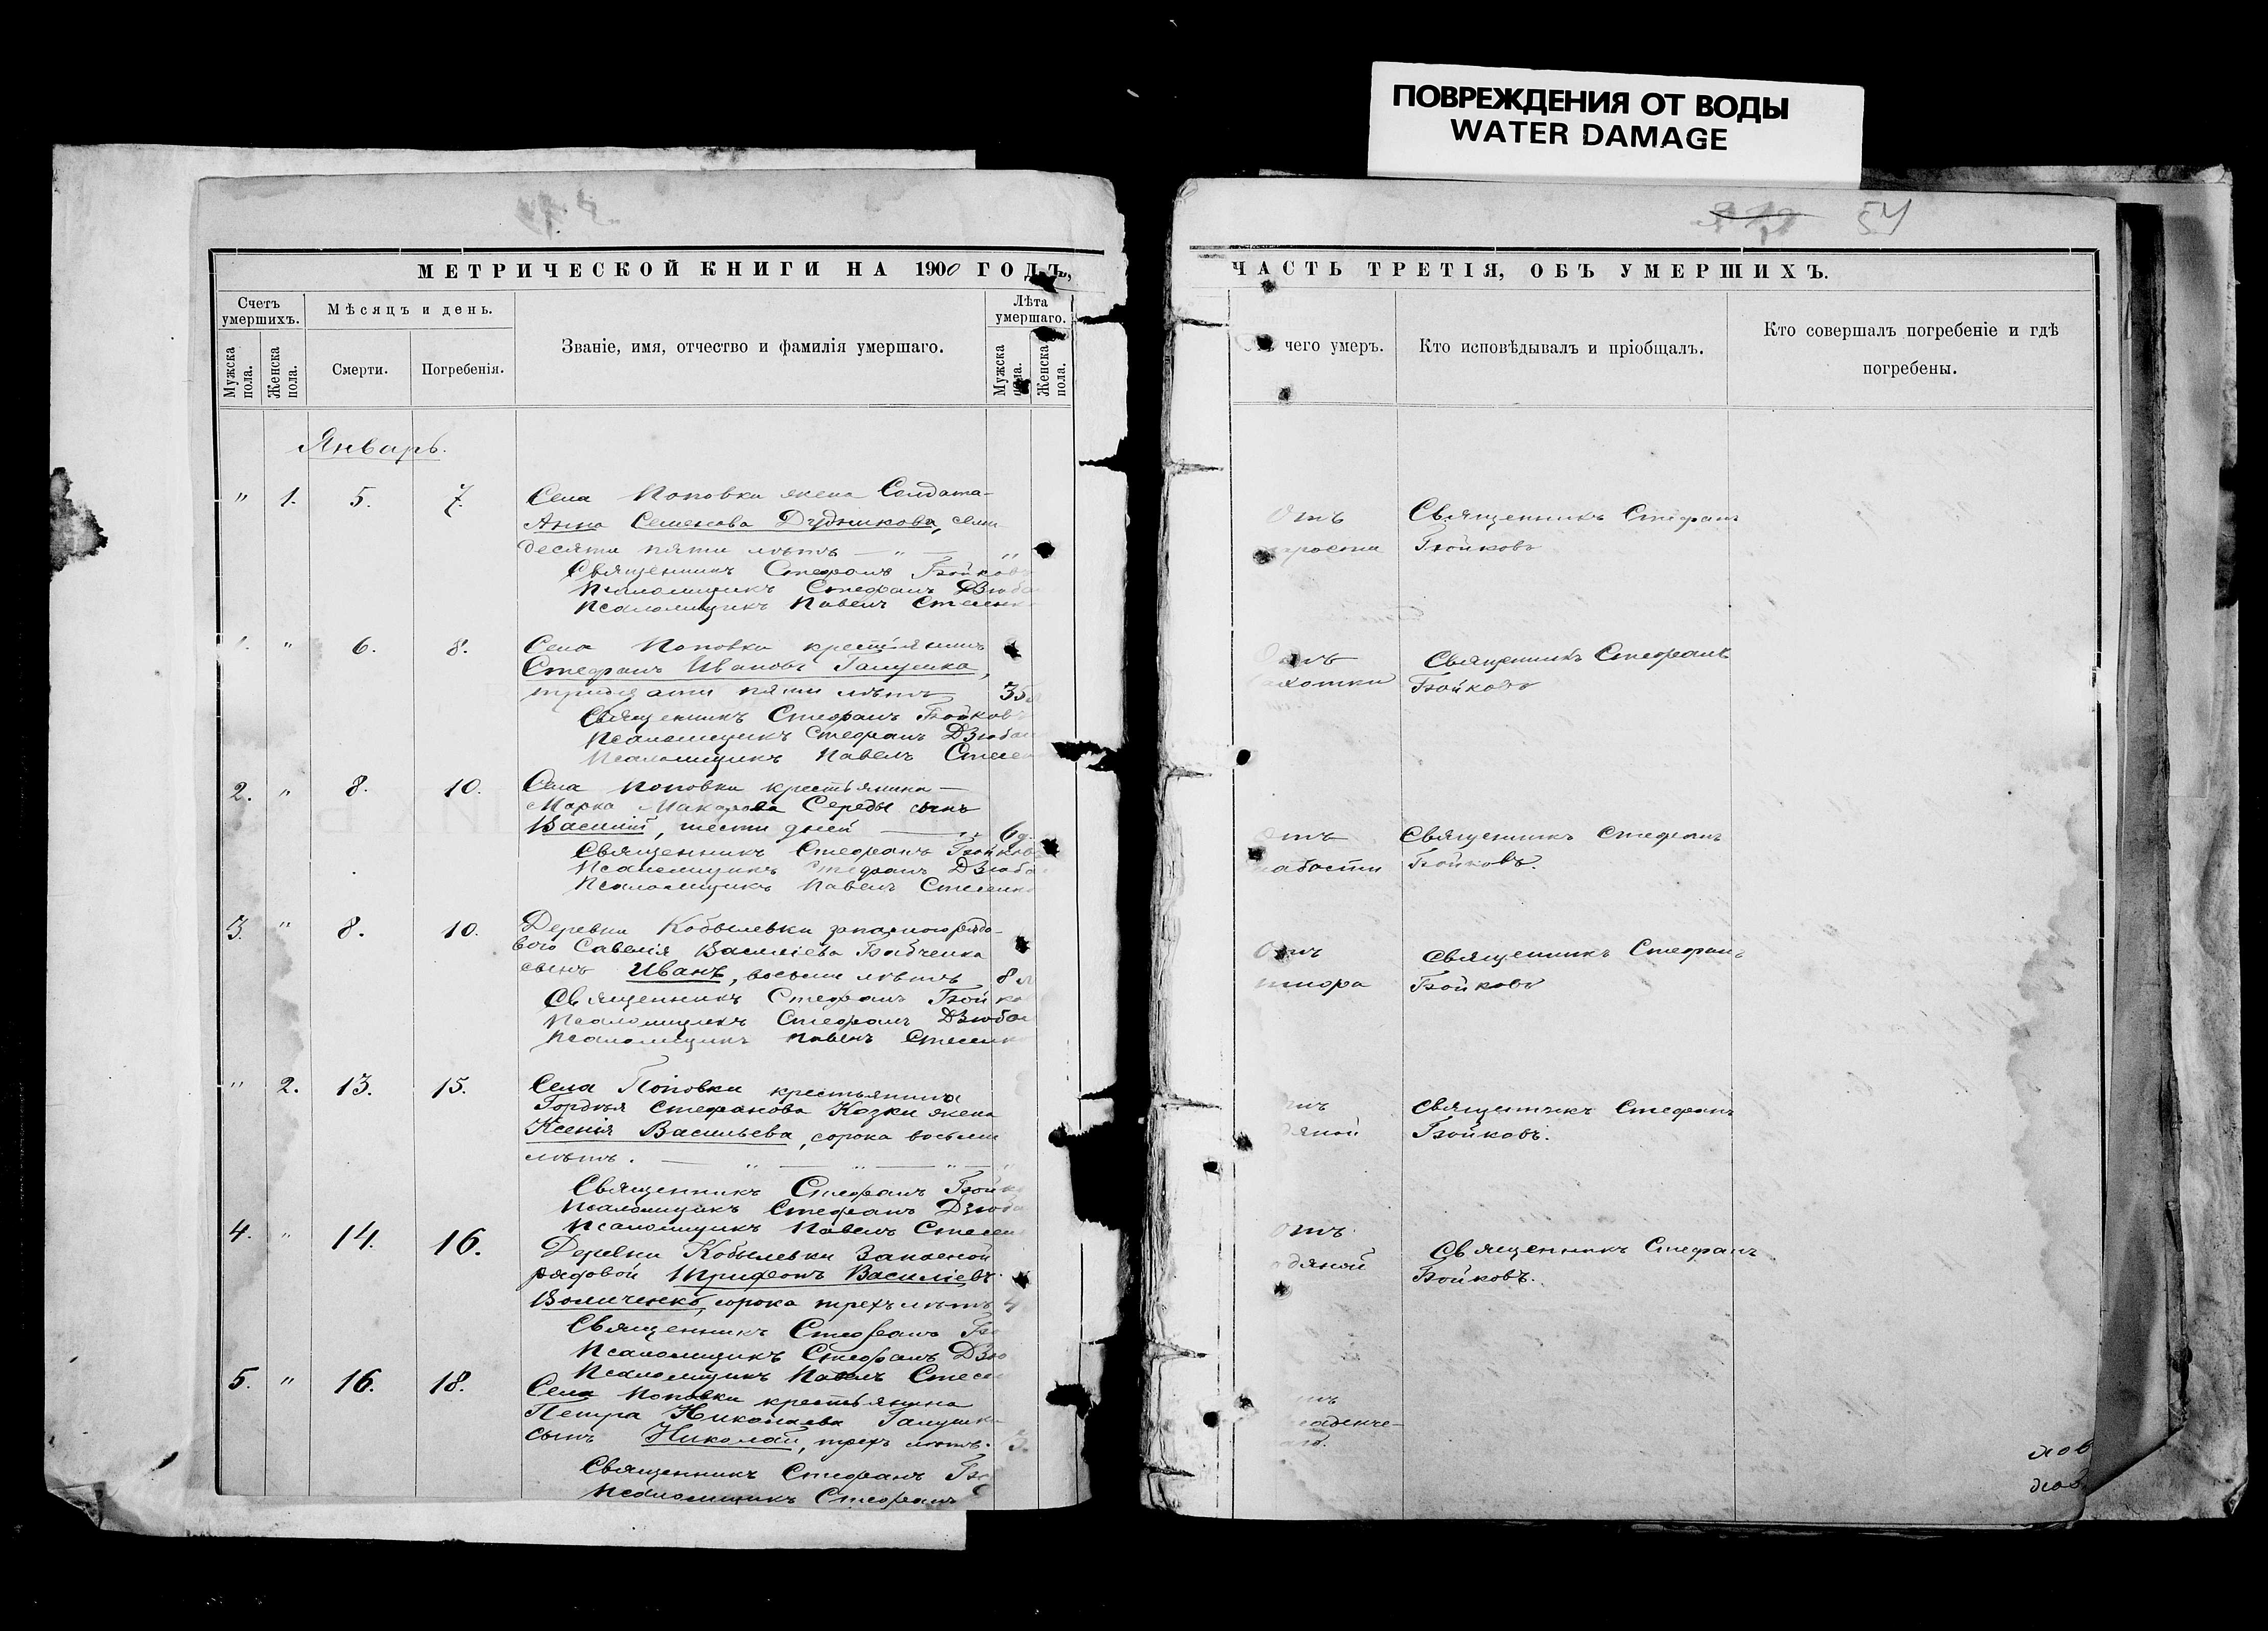 ПОВРЕЖДЕНИЯ ОТ ВОДЫ
WATER DAMAGE
54
МЕТРИЧЕСКОЙ КНИГИ НА 1900 ГОДЪ,
Счетъ умершихъ.
Мужска пола.
Женска пола.
Мѣсяцъ и день.
Смерти.
Погребенія.
Званіе, имя, отчество и фамилія умершаго.
Лѣта умершаго.
Мужска пола.
Женска пола.
Январь.
" 1. 5. 7. Села Поповки жена Солдата
Анна Семенова Дудникова, семи
десяти пяти лѣтъ — " — "
Священникъ Стефанъ Бойковъ
Псаломщикъ Стефанъ Дзюба
Псаломщикъ Павелъ
1. " 6. 8. Села Поповки крестьянинъ
Стефанъ Ивановъ Галушка,
тридцати пяти лѣтъ 35
Священникъ Стефанъ Бойковъ
Псаломщикъ Стефанъ Дзюба
Псаломщикъ Павелъ
2. " 8. 10. Села Поповки крестьянина
Марка Макарова Середы сынъ
Василій, шести дней — " 6д.
Священникъ Стефанъ Бойковъ
Псаломщикъ Стефанъ Дзюба
Псаломщикъ Павелъ
3. " 8. 10. Деревни Кобылевки запаснорядо-
вого Савелія Василіева Бабченка
сынъ Иванъ, восьми лѣтъ 8 л
Священникъ Стефанъ Бойко
Псаломщикъ Стефанъ Дзюба
Псаломщикъ Павелъ
" 2. 13. 15. Села Поповки крестьянина
Гордѣя Стефанова Козки жена
Ксенія Васильева, сорока восьми
лѣтъ. — " — " — " — "
Священникъ Стефанъ Бойк
Псаломщикъ Стефанъ Дзюба
Псаломщикъ Павелъ
4. " 14. 16. Деревни Кобылевки Запасной
рядовой Трифонъ Василіевъ
сорока трехъ лѣтъ 4
Священникъ Стефанъ
Псаломщикъ Стефанъ Дзю
Псаломщикъ Павелъ
5. " 16. 18. Села Поповки крестьянина
Петра Николаева Галушки
сынъ Николай, трехъ лѣтъ. 3
Священникъ Стефанъ
Псаломщикъ Стефанъ
ЧАСТЬ ТРЕТІЯ, ОБЪ УМЕРШИХЪ.
чего умеръ.
Кто исповѣдывалъ и пріобщалъ.
Кто совершалъ погребеніе и гдѣ
погребены.
Отъ Священникъ Стефанъ
Бойковъ
Отъ Священникъ Стефанъ
Бойковъ
Священникъ Стефанъ
Бойковъ.
Отъ Священникъ Стефанъ
Бойковъ
Священникъ Стефанъ
Бойковъ.
Отъ
дяной Священникъ Стефанъ
Бойковъ.